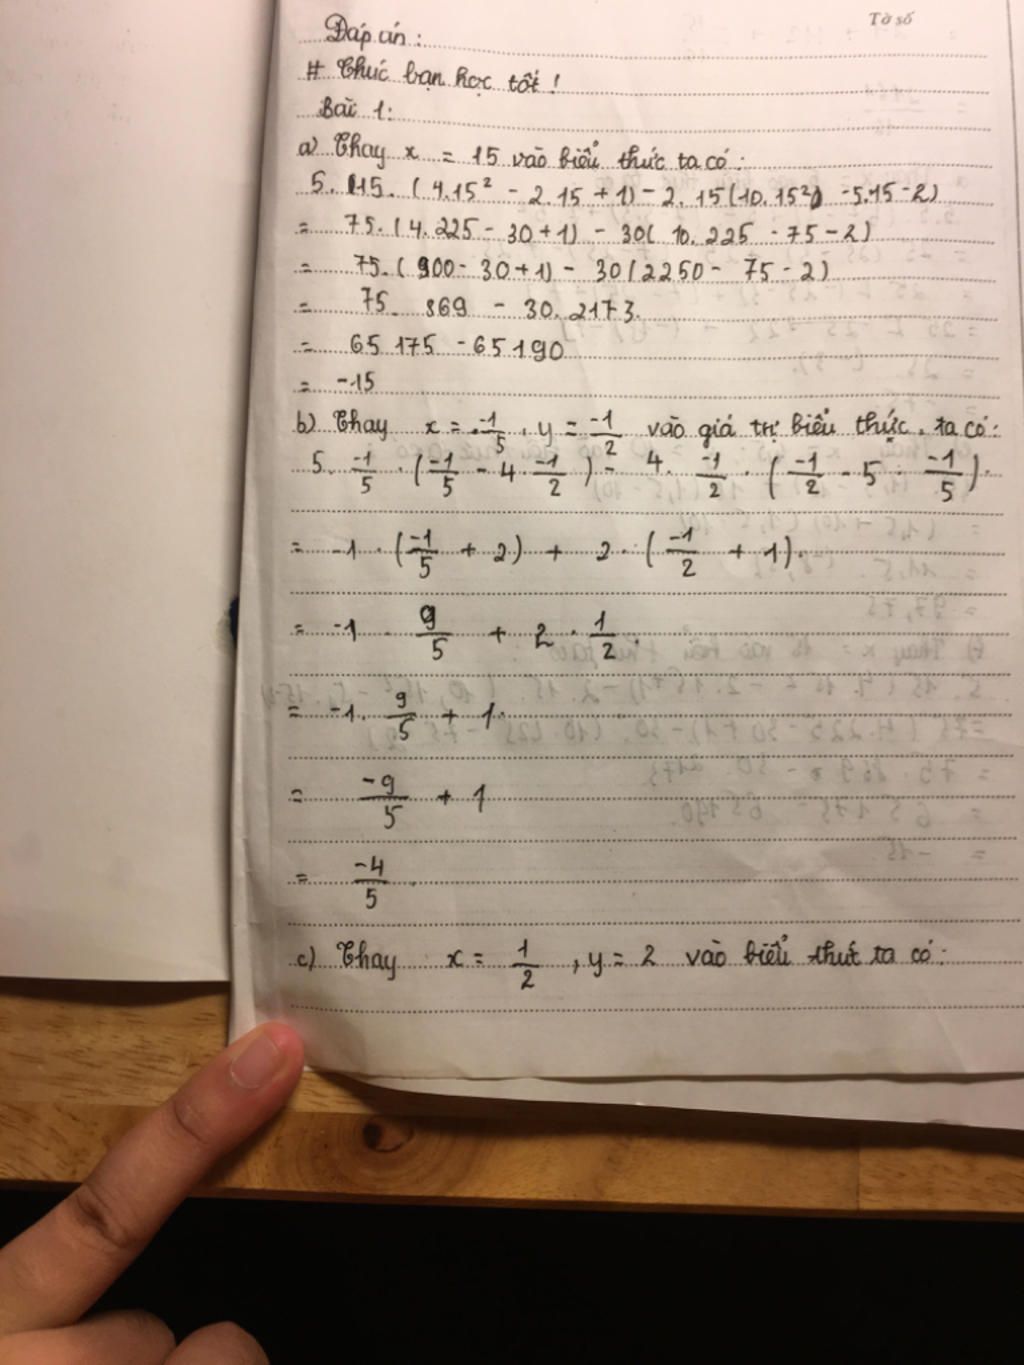 Tờ số
Đáp án:
# Chúc bạn học tốt!
Bài 1:
a) Thay x = 15 vào biểu thức ta có:
5. 15. (4.15² - 2.15 + 1) - 2. 15(10.15² - 5.15 - 2)
= 75. (4.225 - 30 + 1) - 30( 10.225 - 75 - 2)
= 75. (900 - 30 + 1) - 30(2250 - 75 - 2)
= 75. 869 - 30. 2173.
= 65 175 - 65 190
= -15
b) Thay x = -1/5, y = -1/2 vào giá trị biểu thức, ta có:
5. -1/5 . (-1/5 - 4. -1/2) - 4. -1/2 . (-1/2 - 5 . -1/5).
= -1 . (-1/5 + 2) + 2 . (-1/2 + 1).
= -1 . 9/5 + 2 . 1/2.
= -1. 9/5 + 1.
= -9/5 + 1
= -4/5.
c) Thay x = 1/2, y = 2 vào biểu thức ta có: